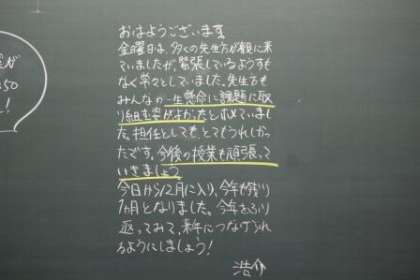 おはようございます
金曜日は、多くの先生方が観に来
ていましたが、緊張しているようすも
なく堂々としていました。先生方も
みんなの一生懸命に課題に取
り組む姿がよかったとほめていまし
た。担任としても、とてもうれしかっ
たです。今後の授業も頑張って
いきましょう。
今日から12月に入り、今年も残り
1ヵ月となりました。今年をふり
返ってみて、来年につなげられ
るようにしましょう!
浩介
が
50
!